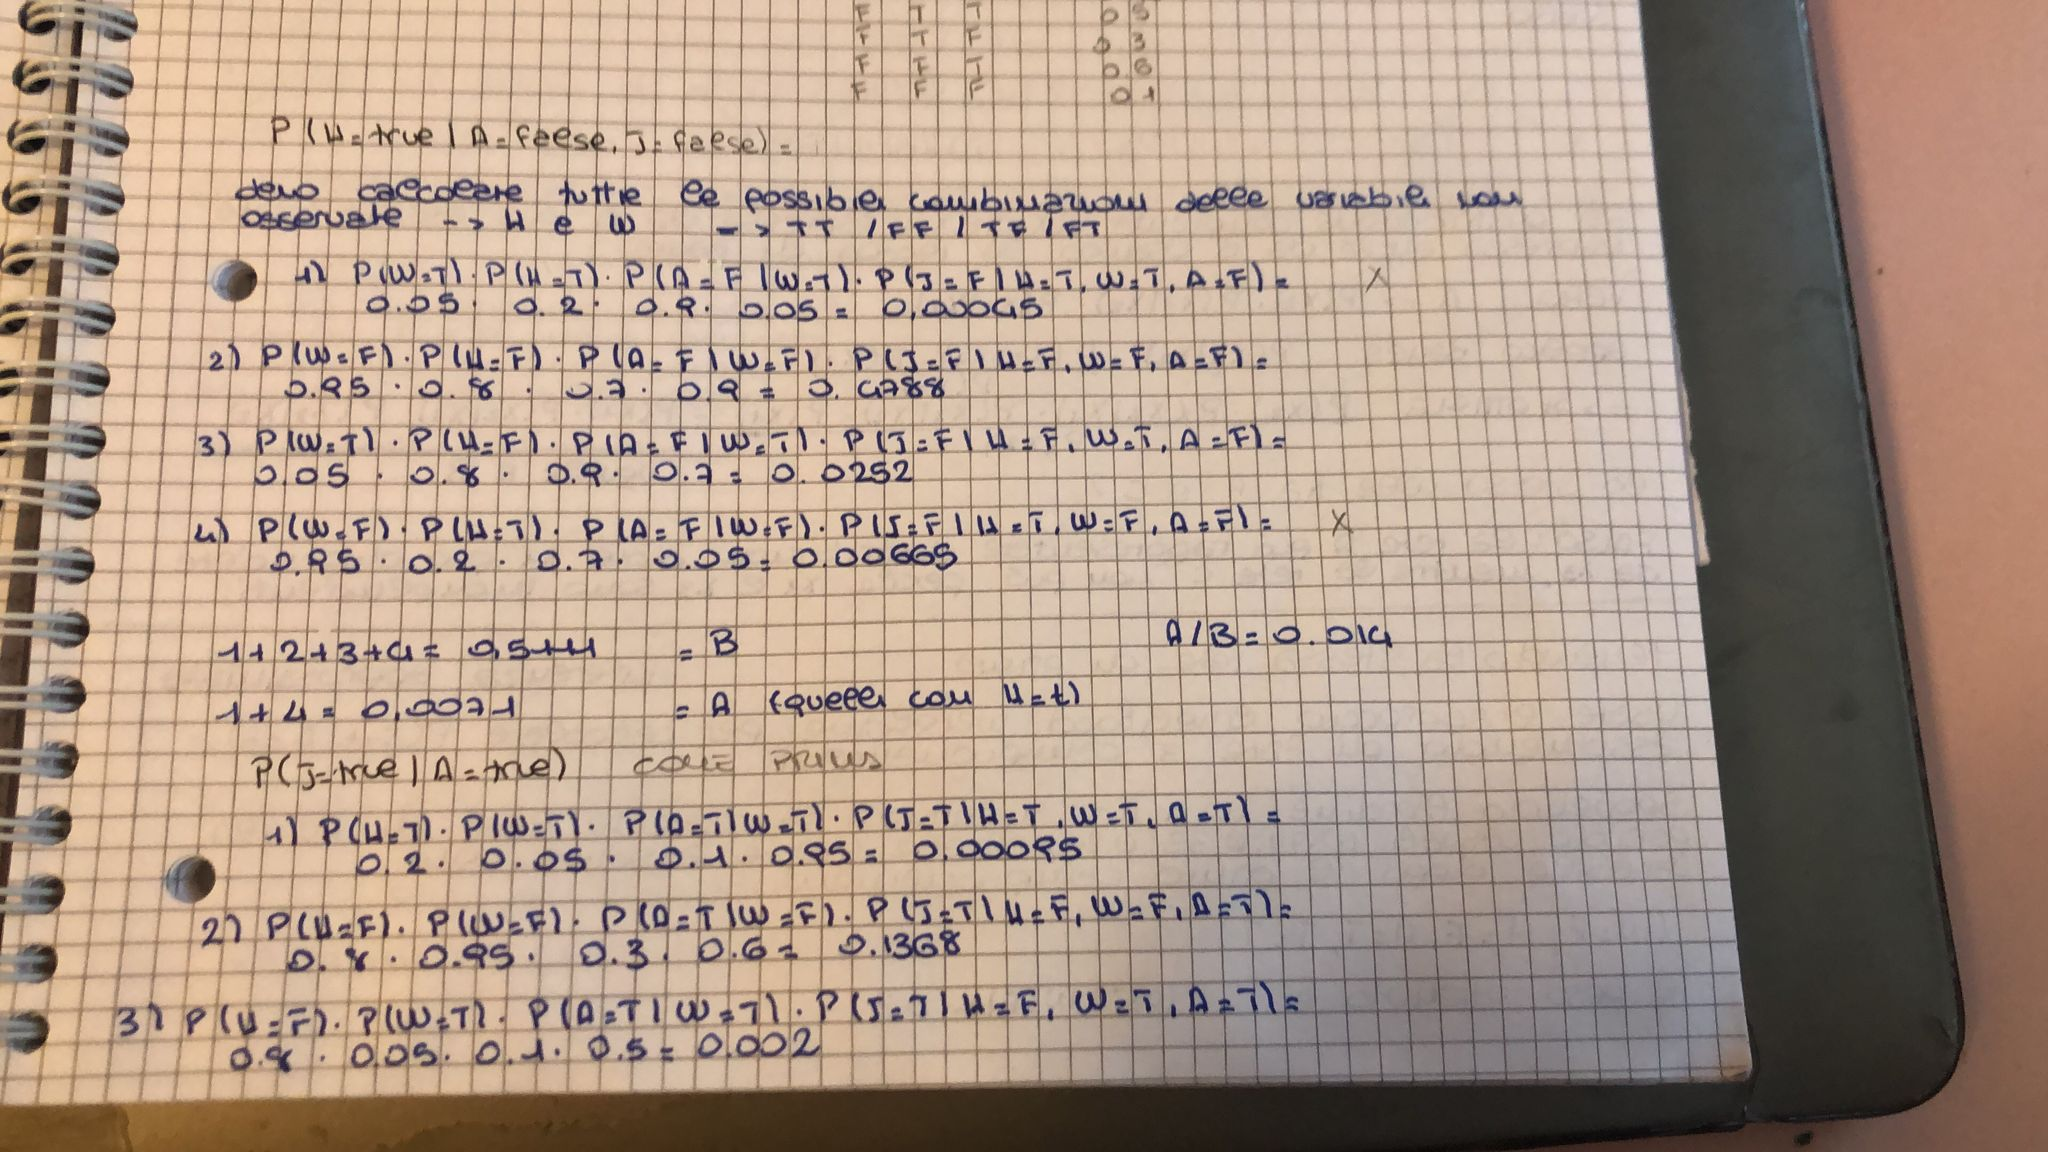 F T T 0 5
F T F 0 3
F F T 0 6
F F F 0 1
P(H=true | A=false, J=false) =
devo calcolare tutte le possibili combinazioni delle variabili non
osservate --> H e W --> TT / FF / TF / FT
1) P(W=T) · P(H=T) · P(A=F | W=T) · P(J=F | H=T, W=T, A=F) = X
0.05 · 0.2 · 0.9 · 0.05 = 0,00045
2) P(W=F) · P(H=F) · P(A=F | W=F) · P(J=F | H=F, W=F, A=F) =
0.95 · 0.8 · 0.7 · 0.9 = 0.4788
3) P(W=T) · P(H=F) · P(A=F | W=T) · P(J=F | H=F, W=T, A=F) =
0.05 · 0.8 · 0.9 · 0.7 = 0.0252
4) P(W=F) · P(H=T) · P(A=F | W=F) · P(J=F | H=T, W=F, A=F) = X
0.95 · 0.2 · 0.7 · 0.05 = 0.00665
1+2+3+4 = 0,5111 = B A/B = 0.014
1+4 = 0,0071 = A (quelli con H=t)
P(J=true | A=true) COME PRIMA
1) P(H=T) · P(W=T) · P(A=T | W=T) · P(J=T | H=T, W=T, A=T) =
0.2 · 0.05 · 0.1 · 0.95 = 0.00095
2) P(H=F) · P(W=F) · P(A=T | W=F) · P(J=T | H=F, W=F, A=T) =
0.8 · 0.95 · 0.3 · 0.6 = 0.1368
3) P(H=F) · P(W=T) · P(A=T | W=T) · P(J=T | H=F, W=T, A=T) =
0.8 · 0.05 · 0.1 · 0.5 = 0.002